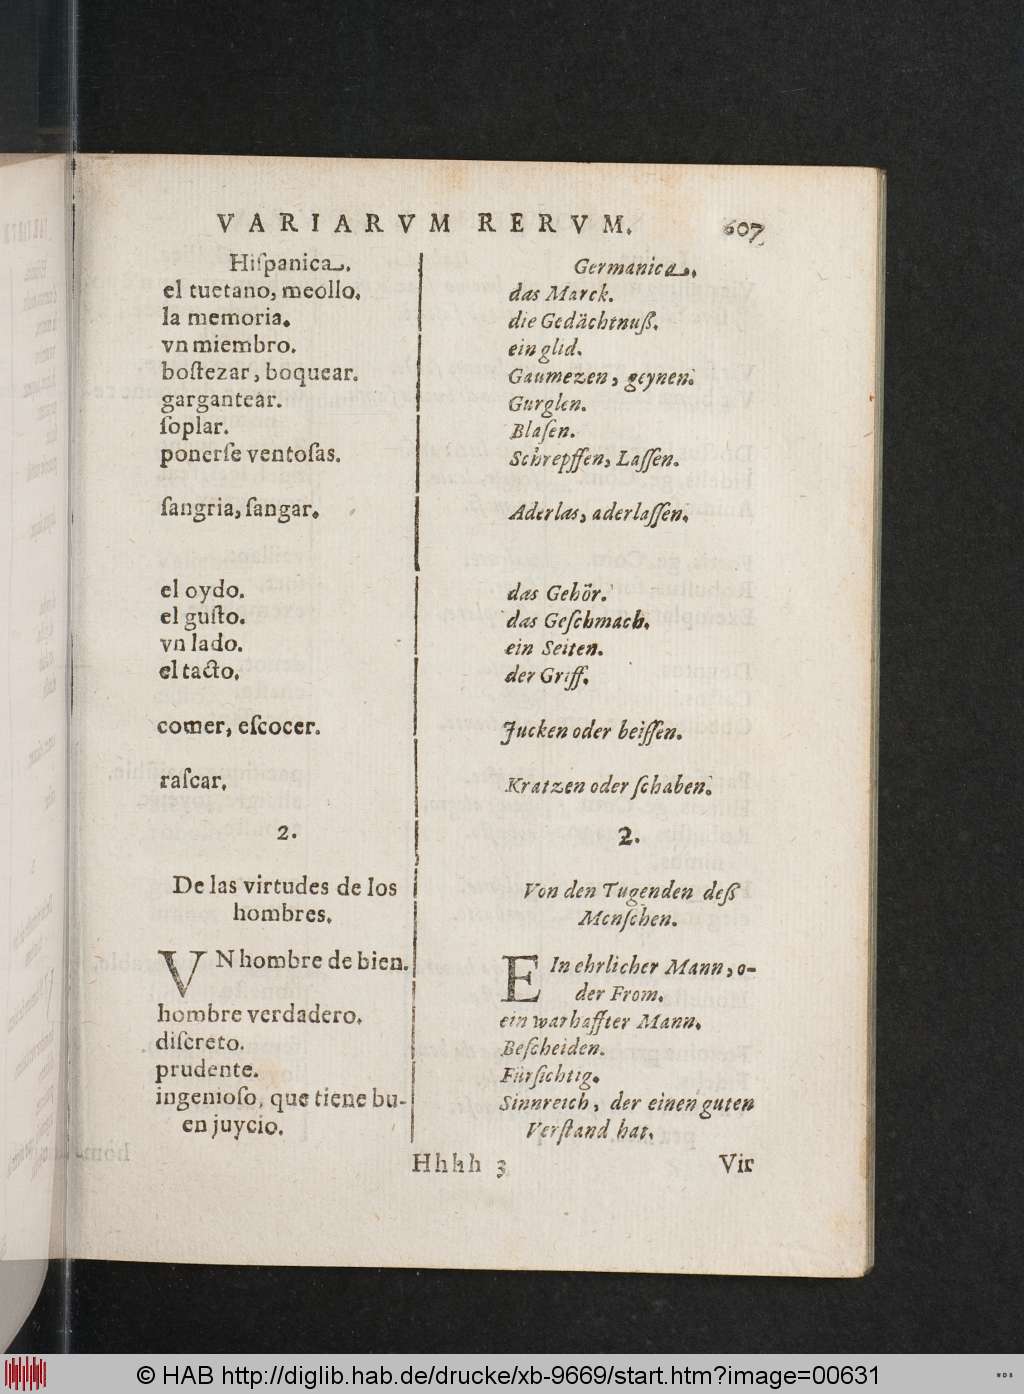 VARIARVM RERVM. 607
Hiſpanica.
el tuetano, meollo.
la memoria.
vn miembro.
boſtezar, boquear.
gargantear.
ſoplar.
ponerſe ventoſas.
ſangria, ſangar.
el oydo.
el guſto.
vn lado.
el tacto.
comer, eſcocer.
raſcar.
2.
De las virtudes de los
hombres.
VN hombre de bien.
hombre verdadero.
diſcreto.
prudente.
ingenioſo, que tiene bu-
en juycio.
Germanica.
das Marck.
die Gedächtnuß.
ein glid.
Gaumezen, geynen.
Gurglen.
Blaſen.
Schrepffen, Laſſen.
Aderlas, aderlaſſen.
das Gehör.
das Geſchmach.
ein Seiten.
der Griff.
Jucken oder beiſſen.
Kratzen oder ſchaben.
2.
Von den Tugenden deß
Menſchen.
EIn ehrlicher Mann, o-
der From.
ein warhaffter Mann.
Beſcheiden.
Fürſichtig.
Sinnreich, der einen guten
Verſtand hat.
Hhhh 3 Vir
© HAB http://diglib.hab.de/drucke/xb-9669/start.htm?image=00631